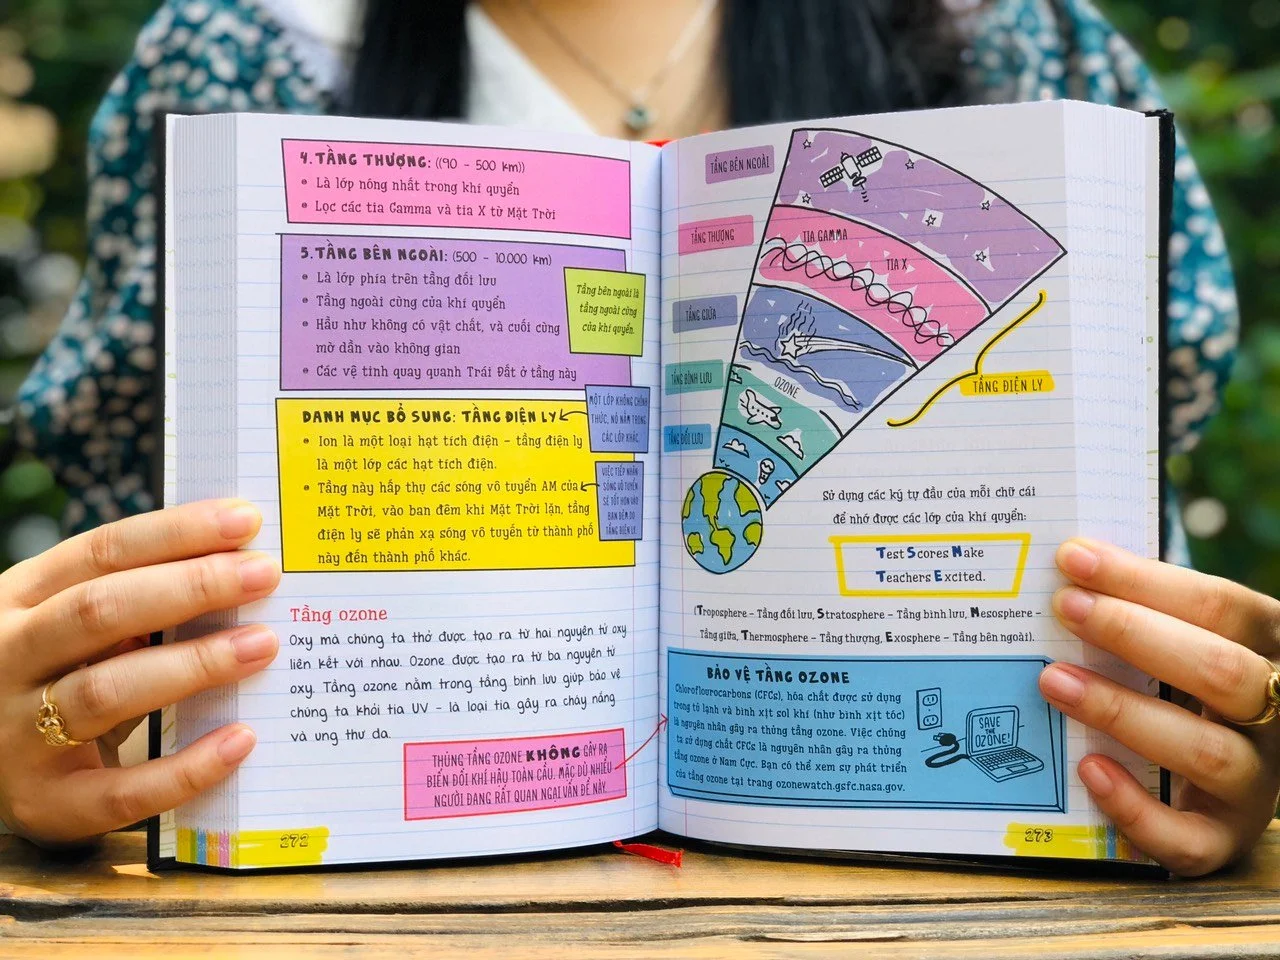 4. TẦNG THƯỢNG: ((90 - 500 km))
• Là lớp nóng nhất trong khí quyển
• Lọc các tia Gamma và tia X từ Mặt Trời
5. TẦNG BÊN NGOÀI: (500 - 10.000 km)
• Là lớp phía trên tầng đối lưu
• Tầng ngoài cùng của khí quyển
• Hầu như không có vật chất, và cuối cùng
mờ dần vào không gian
• Các vệ tinh quay quanh Trái Đất ở tầng này
Tầng bên ngoài là
tầng ngoài cùng
của khí quyển.
DANH MỤC BỔ SUNG: TẦNG ĐIỆN LY
• Ion là một loại hạt tích điện - tầng điện ly
là một lớp các hạt tích điện.
• Tầng này hấp thụ các sóng vô tuyến AM của
Mặt Trời, vào ban đêm khi Mặt Trời lặn, tầng
điện ly sẽ phản xạ sóng vô tuyến từ thành phố
này đến thành phố khác.
MỘT LỚP KHÔNG CHÍNH
THỨC, NÓ NẰM TRONG
CÁC LỚP KHÁC.
VIỆC TIẾP NHẬN
SÓNG VÔ TUYẾN
SẼ TỐT HƠN VÀO
BAN ĐÊM DO
TẦNG ĐIỆN LY
Tầng ozone
Oxy mà chúng ta thở được tạo ra từ hai nguyên tử oxy
liên kết với nhau. Ozone được tạo ra từ ba nguyên tử
oxy. Tầng ozone nằm trong tầng bình lưu giúp bảo vệ
chúng ta khỏi tia UV - là loại tia gây ra cháy nắng
và ung thư da.
THỦNG TẦNG OZONE KHÔNG GÂY RA
BIẾN ĐỔI KHÍ HẬU TOÀN CẦU. MẶC DÙ NHIỀU
NGƯỜI ĐANG RẤT QUAN NGẠI VẤN ĐỀ NÀY.
272
TẦNG BÊN NGOÀI
TẦNG THƯỢNG
TIA GAMMA
TIA X
TẦNG GIỮA
TẦNG BÌNH LƯU
OZONE
TẦNG ĐỐI LƯU
TẦNG ĐIỆN LY
Sử dụng các ký tự đầu của mỗi chữ cái
để nhớ được các lớp của khí quyển:
Test Scores Make
Teachers Excited.
(Troposphere - Tầng đối lưu, Stratosphere - Tầng bình lưu, Mesosphere -
Tầng giữa, Thermosphere - Tầng thượng, Exosphere - Tầng bên ngoài).
BẢO VỆ TẦNG OZONE
Chloroflourocarbons (CFCs), hóa chất được sử dụng
trong tủ lạnh và bình xịt sol khí (như bình xịt tóc)
là nguyên nhân gây ra thủng tầng ozone. Việc chúng
ta sử dụng chất CFCs là nguyên nhân gây ra thủng
tầng ozone ở Nam Cực. Bạn có thể xem sự phát triển
của tầng ozone tại trang ozonewatch.gsfc.nasa.gov.
SAVE
THE
OZONE!
273